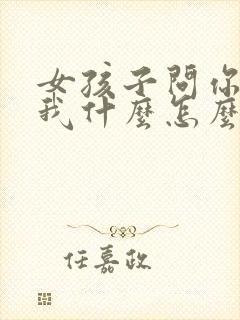 女孩子問你
我什麼怎麼
任嘉政